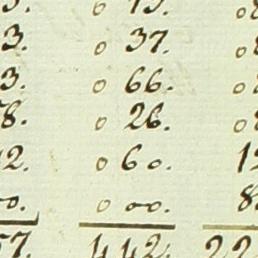 3. 0 37.
3. 0 66. 0
8. 0 26. 0
2. 0 60. 12
0. 0 00. 8
57. 442. 22